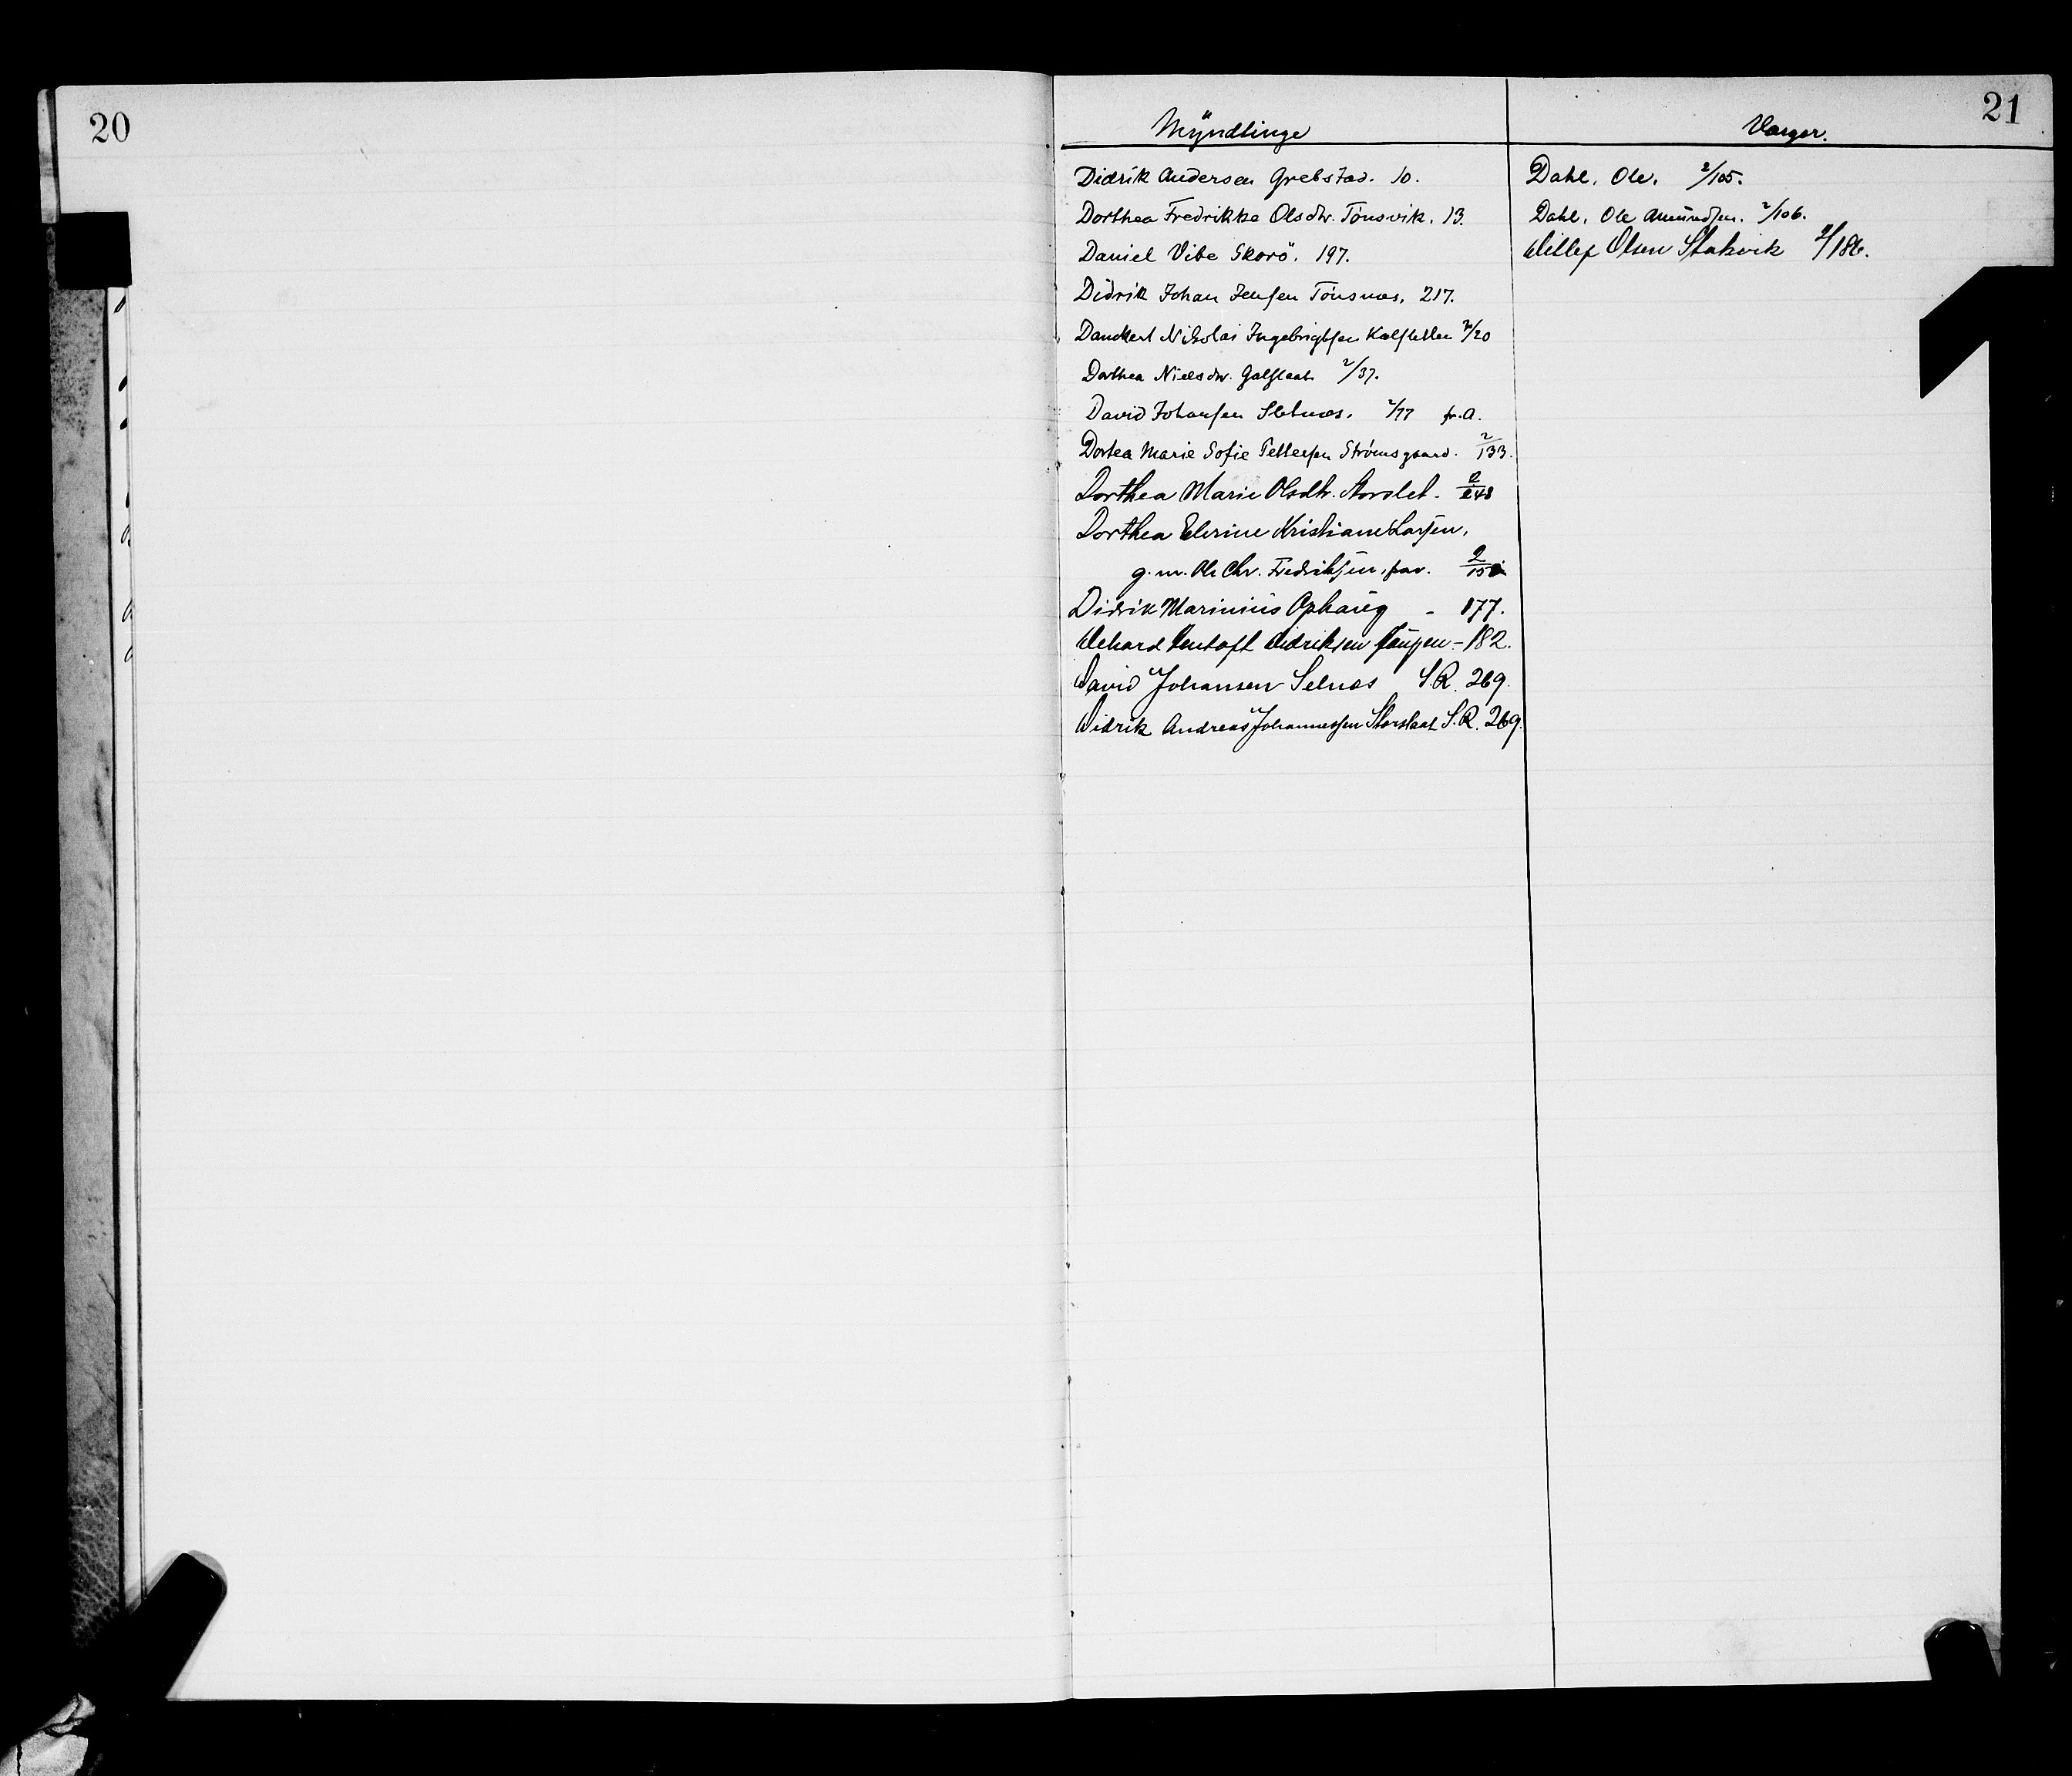 20
21
Myndlinge
Værger.
Didrik Andersen Grebstad. 10.
Dorthea Fredrikke Olsdtr. Tönsvik. 13.
Daniel Vibe Skorö. 197.
Didrik Johan Jensen Tönsnæs, 217.
Danckert Nikolai Ingebrigtsen 2/20
Dorthea Nielsdtr. 2/37.
David Johansen Selnæs. 2/77 fr.a.
Dortea Marie Sofie Pettersen Strømsgaard. 2/133.
Dorthea Marie Olsdtr. Storslet. 2/248
Dorthea Elerine Kristiane Larsen,
g.m. Ole Chr. Fredriksen, 2/
Didrik Marinius Ophaug - 177.
Didriksen - 182.
David Johansen Selnæs S.R. 269
Didrik Andreas Johannessen Storslaat S.R. 269.
Dahl, Ole. 2/105.
Dahl, Ole Amundsen. 2/106.
Ditlef Olsen Stakvik 2/186.